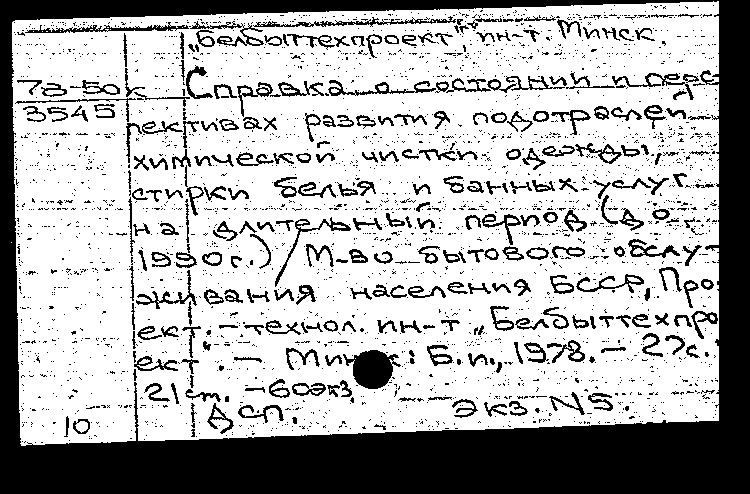 „Белбыттехпроект", ин-т. Минск.
78-50к Справка о состоянии и перс-
3545 пективах развития подотраслей
химической чистки одежды,
стирки белья и банных услуг
на длительный период (до
1990г.) / М-во бытового обслу-
живания населения БССР, Про-
ект.-технол. ин-т „Белбыттехпро
ект". - Минск: Б.и., 1978. - 27с.
21 см. - 60экз
10 ДСП. экз. N5.